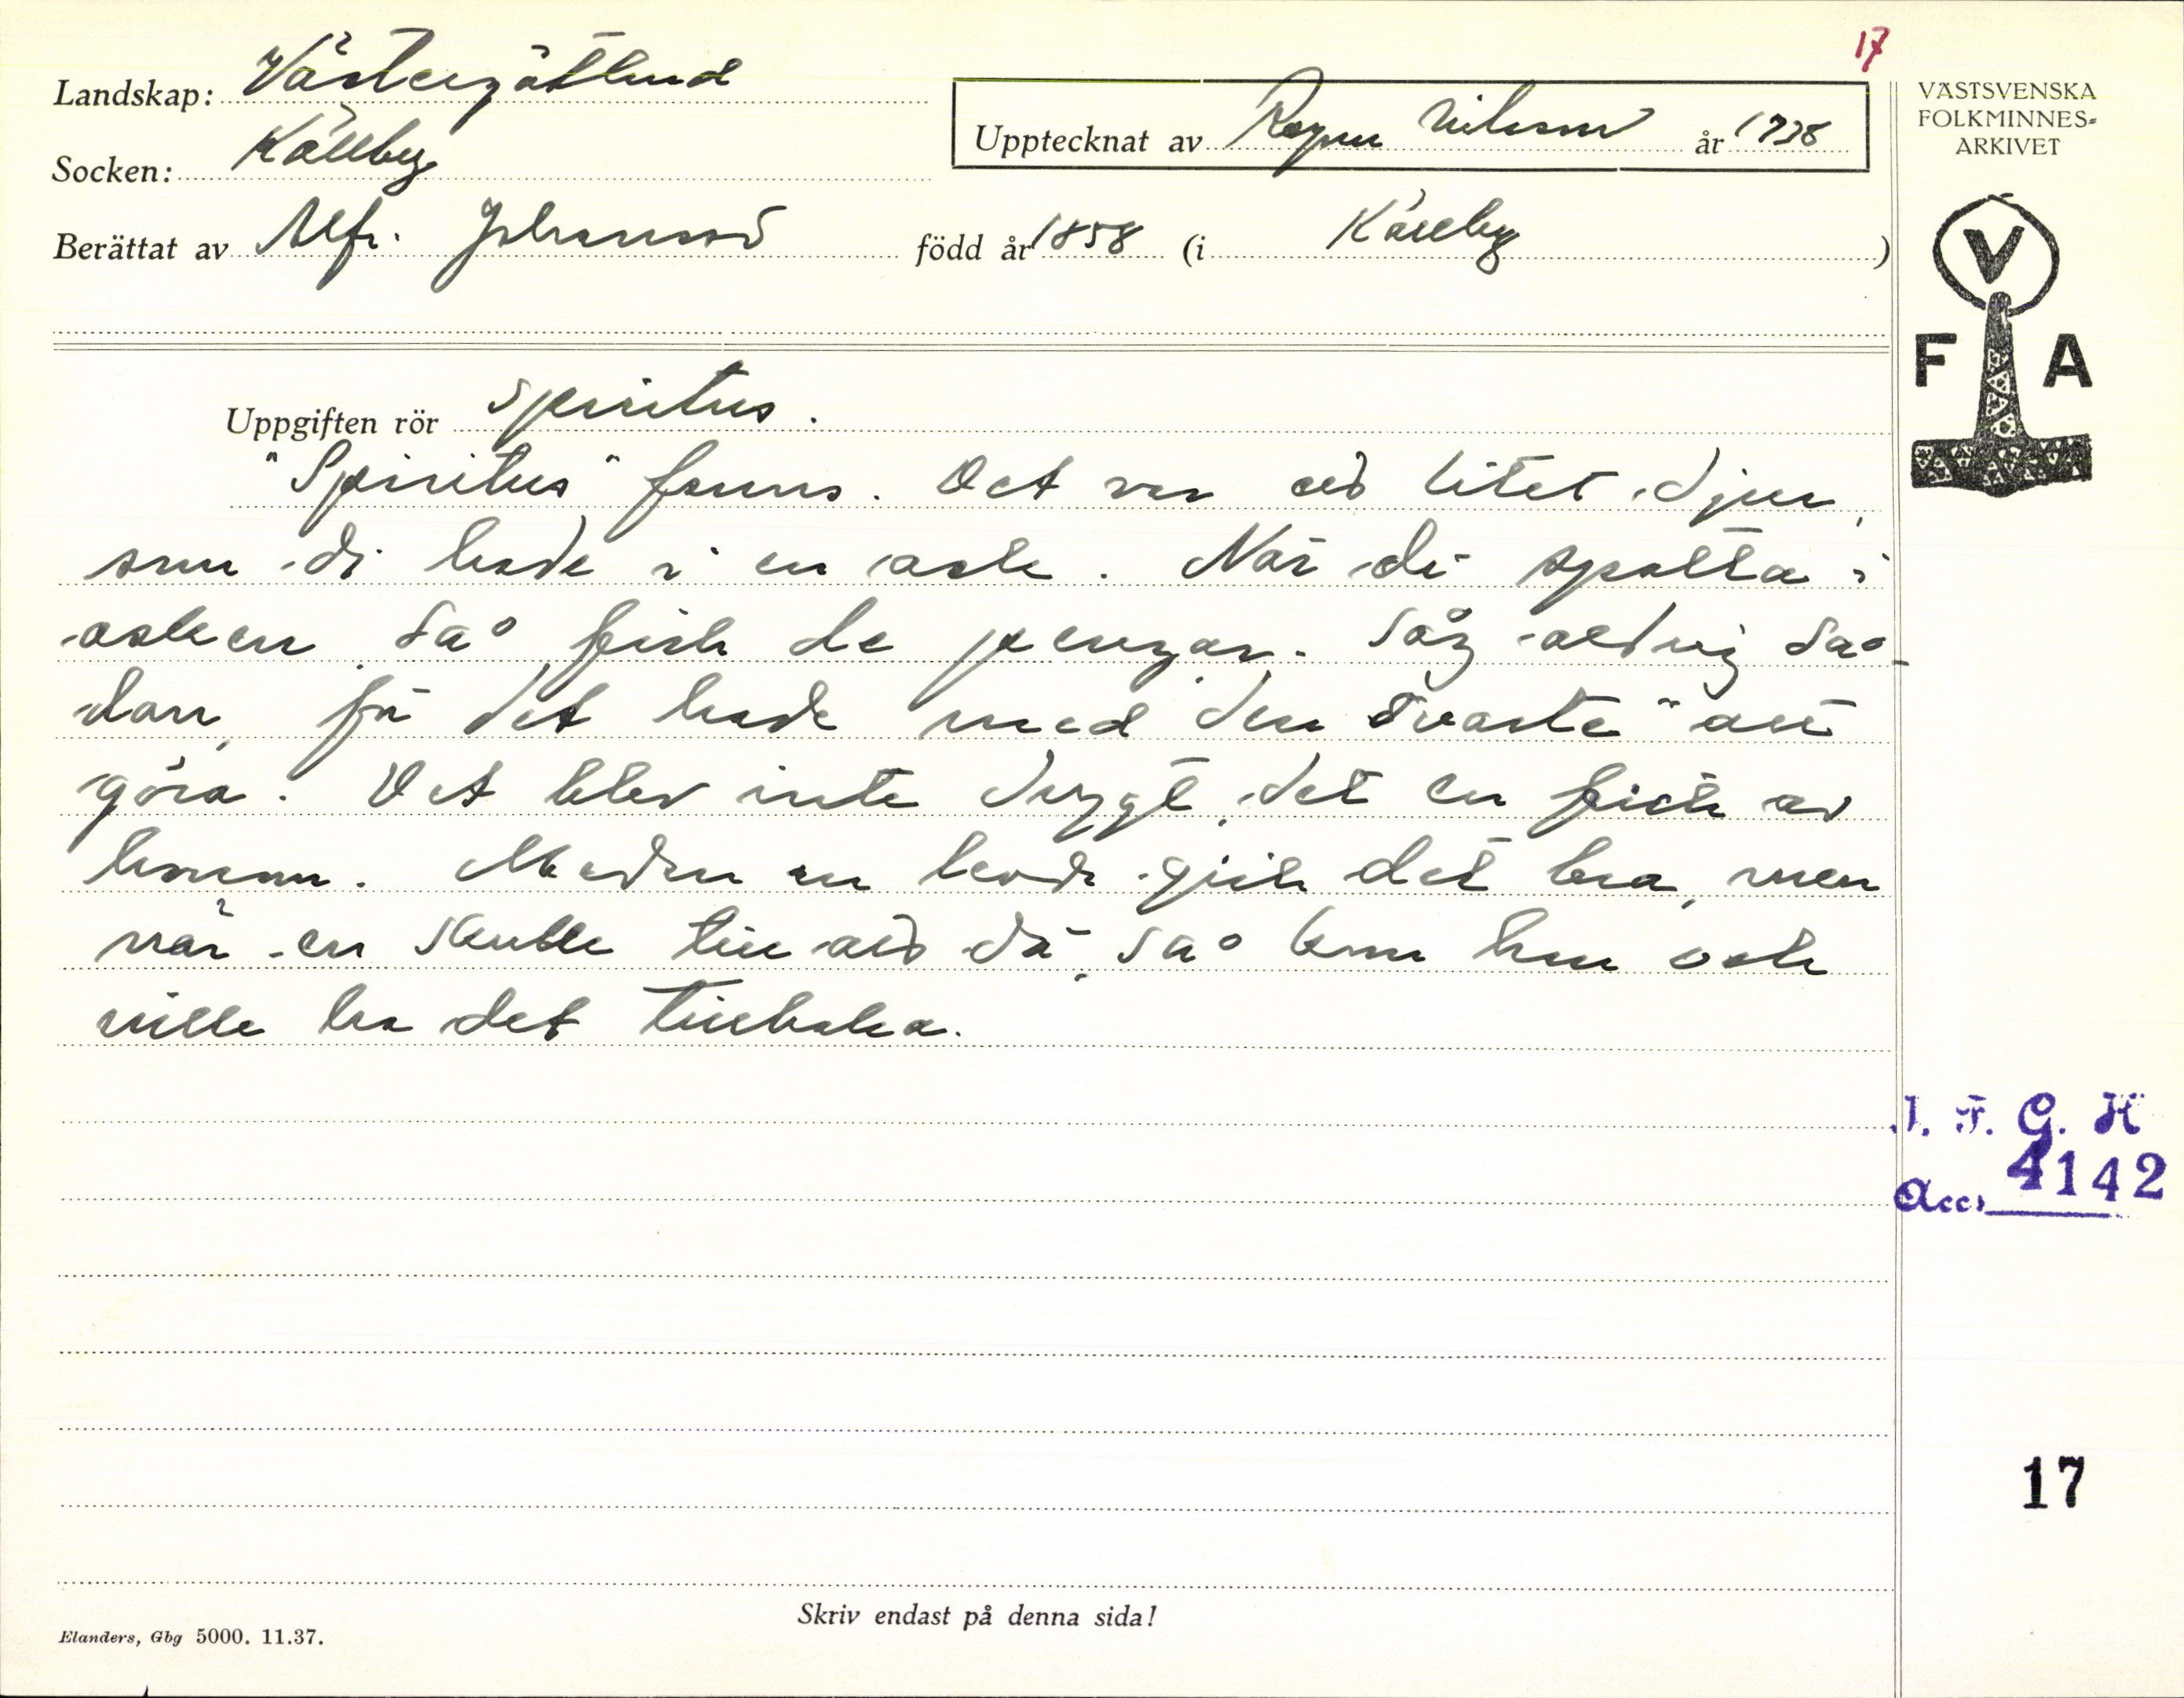 17
Landskap: Västergötland
Socken: Källby
Upptecknat av Ragnar Nilsson år 1938
Berättat av Alfr. Johansson född år 1858 (i Källby)
VÄSTSVENSKA
FOLKMINNES=
ARKIVET
V
F A
Uppgiften rör spiritus.
"Spiritus" fanns. Det var ett litet djur,
som di hade i en ask. När di spotta i
asken, så fick de pengar. Såg aldrig så-
dan, för det hade med "den svarte" att
göra. Det blev inte drygt, det en fick av
honom. Medan en levde gick det bra, men
när en skulle till att dö, så kom han och
ville ha det tillbaka.
I. F. G. H
Acc. 4142
17
Skriv endast på denna sida!
Elanders, Gbg 5000. 11.37.